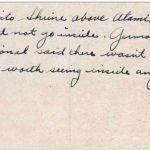 ito Shrine above Atami
d not go inside. Gunso
ional said there wasn't
worth seeing inside any